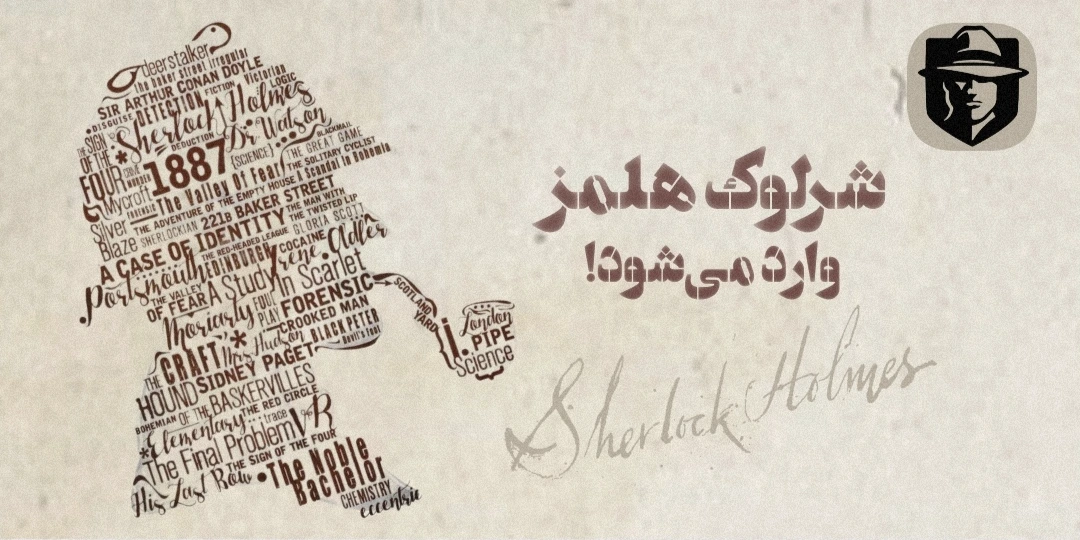 deerstalker
the baker street irregular
SIR ARTHUR CONAN DOYLE
Victorian
DISGUISE DETECTION FICTION LOGIC
THE SIGN OF THE FOUR
Sherlock Holmes
DEDUCTION Dr Watson
BLACKMAIL
1887 {SCIENCE} THE GREAT GAME
THE SOLITARY CYCLIST
Mycroft
FORENSIC The Valley Of Fear A Scandal in Bohemia
THE ADVENTURE OF THE EMPTY HOUSE
Silver Blaze SHERLOCKIAN 221B BAKER STREET
THE MAN WITH THE TWISTED LIP
A CASE OF IDENTITY
THE RED-HEADED LEAGUE GLORIA SCOTT
COCAINE Adler
Portsmouth EDINBURGH Irene
THE VALLEY OF FEAR A Study In Scarlet
Moriarty FOUL PLAY FORENSIC
CROOKED MAN
SCOTLAND YARD
London
PIPE
Science
THE CRAFT Mrs Hudson BLACK PETER
Devil's Foot
HOUND SIDNEY PAGET
OF THE BASKERVILLES
BOHEMIAN THE RED CIRCLE
Elementary trace VR
The Final Problem
THE SIGN OF THE FOUR
His Last Bow The Noble Bachelor
CHEMISTRY
eccentric
شرلوک هلمز
وارد می‌شود!
Sherlock Holmes